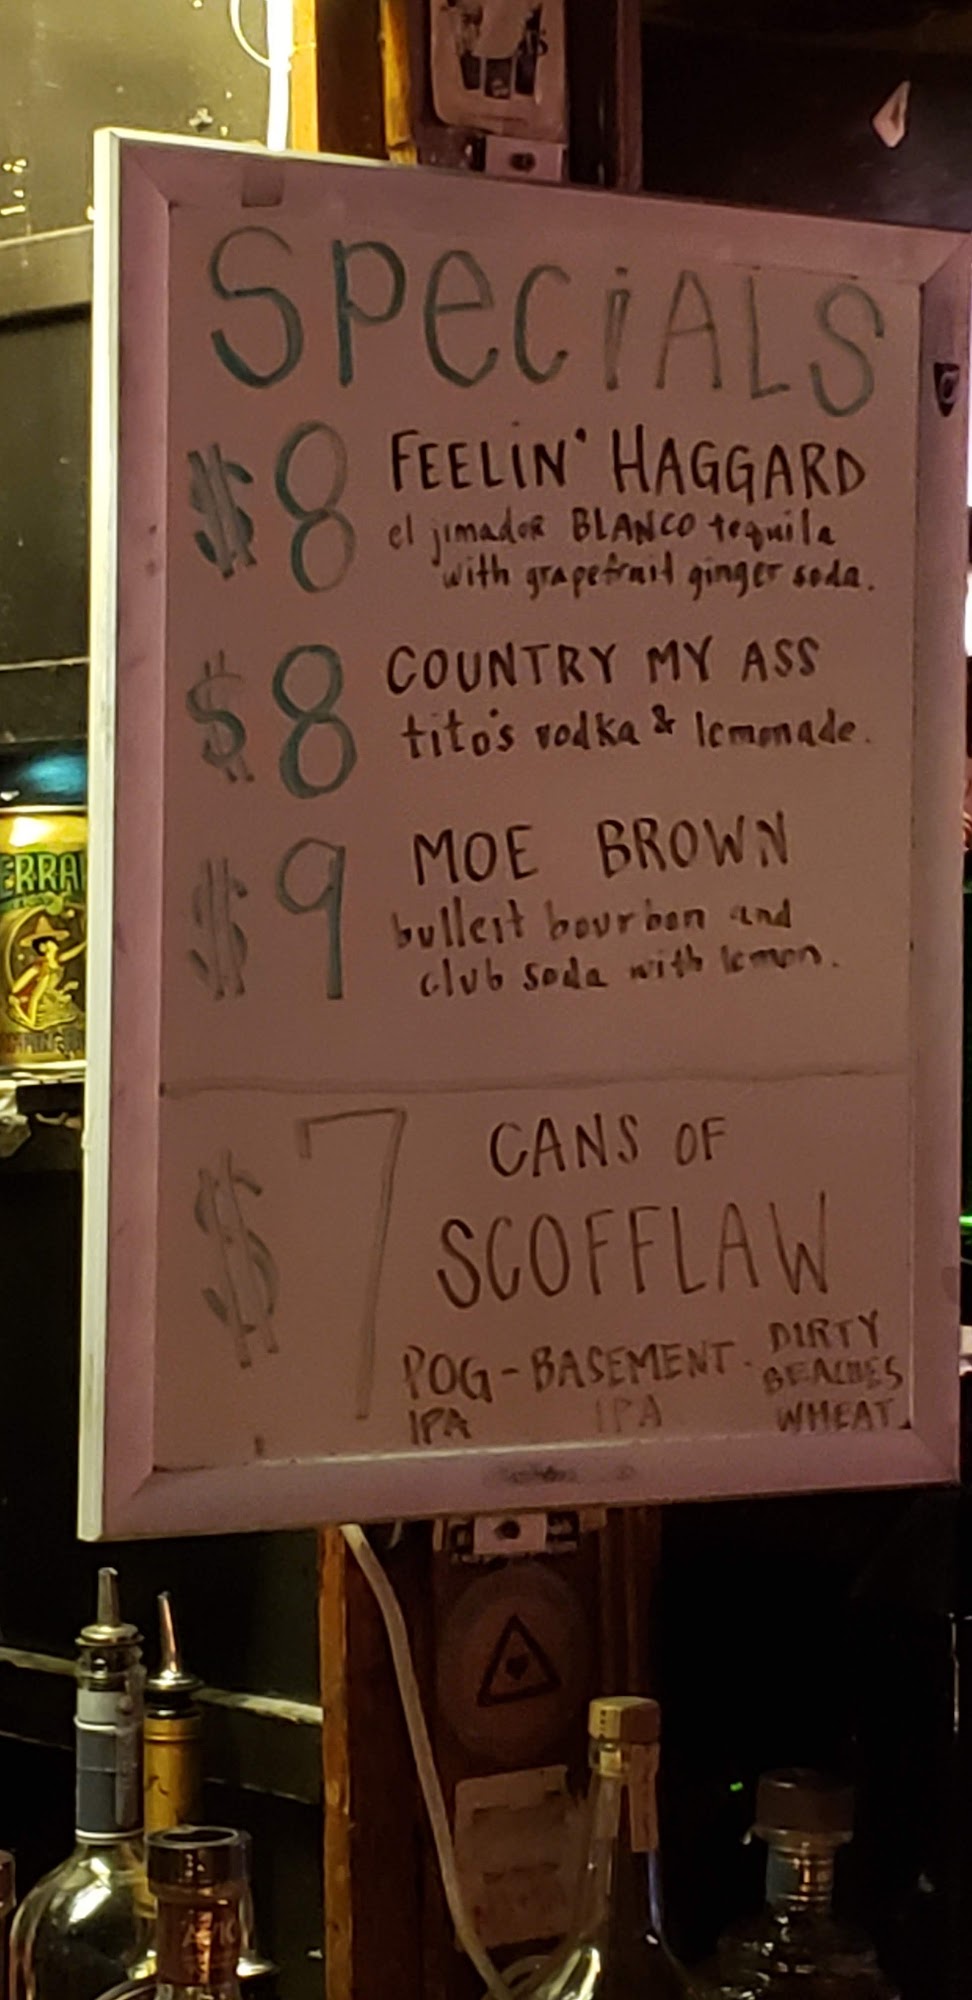 SPeCiALS
$8 FEELIN' HAGGARD
el jimador BLANCO tequila
with grapefruit ginger soda.
$8 COUNTRY MY ASS
tito's vodka & lemonade.
$9 MOE BROWN
bulleit bourbon and
club soda with lemon.
$7 CANS OF
SCOFFLAW
POG - BASEMENT - DIRTY
BEACHES
IPA IPA WHEAT
ERRA